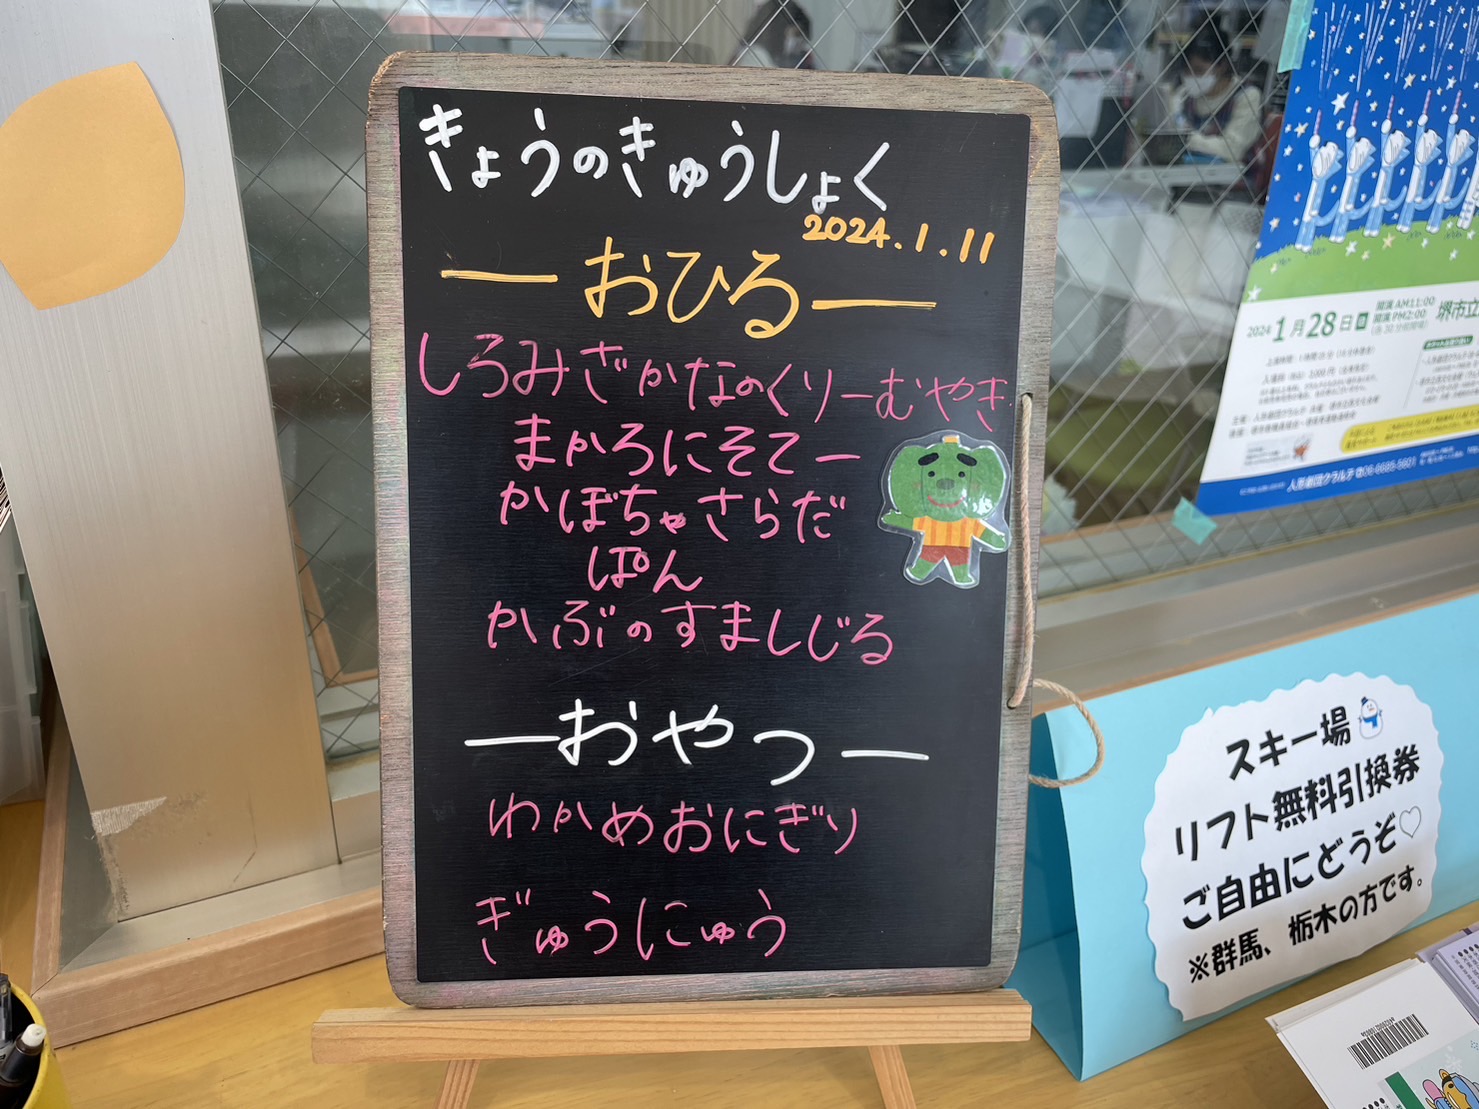 きょうのきゅうしょく
2024.1.11
ーおひるー
しろみざかなのくりーむやき
まかろにそてー
かぼちゃさらだ
ぱん
かぶのすましじる
ーおやつー
わかめおにぎり
ぎゅうにゅう
2024 1月28日
開演 AM11:00
開演 PM2:00
堺市立
人形劇団クラルテ
スキー場
リフト無料引換券
ご自由にどうぞ♡
※群馬、栃木の方です。